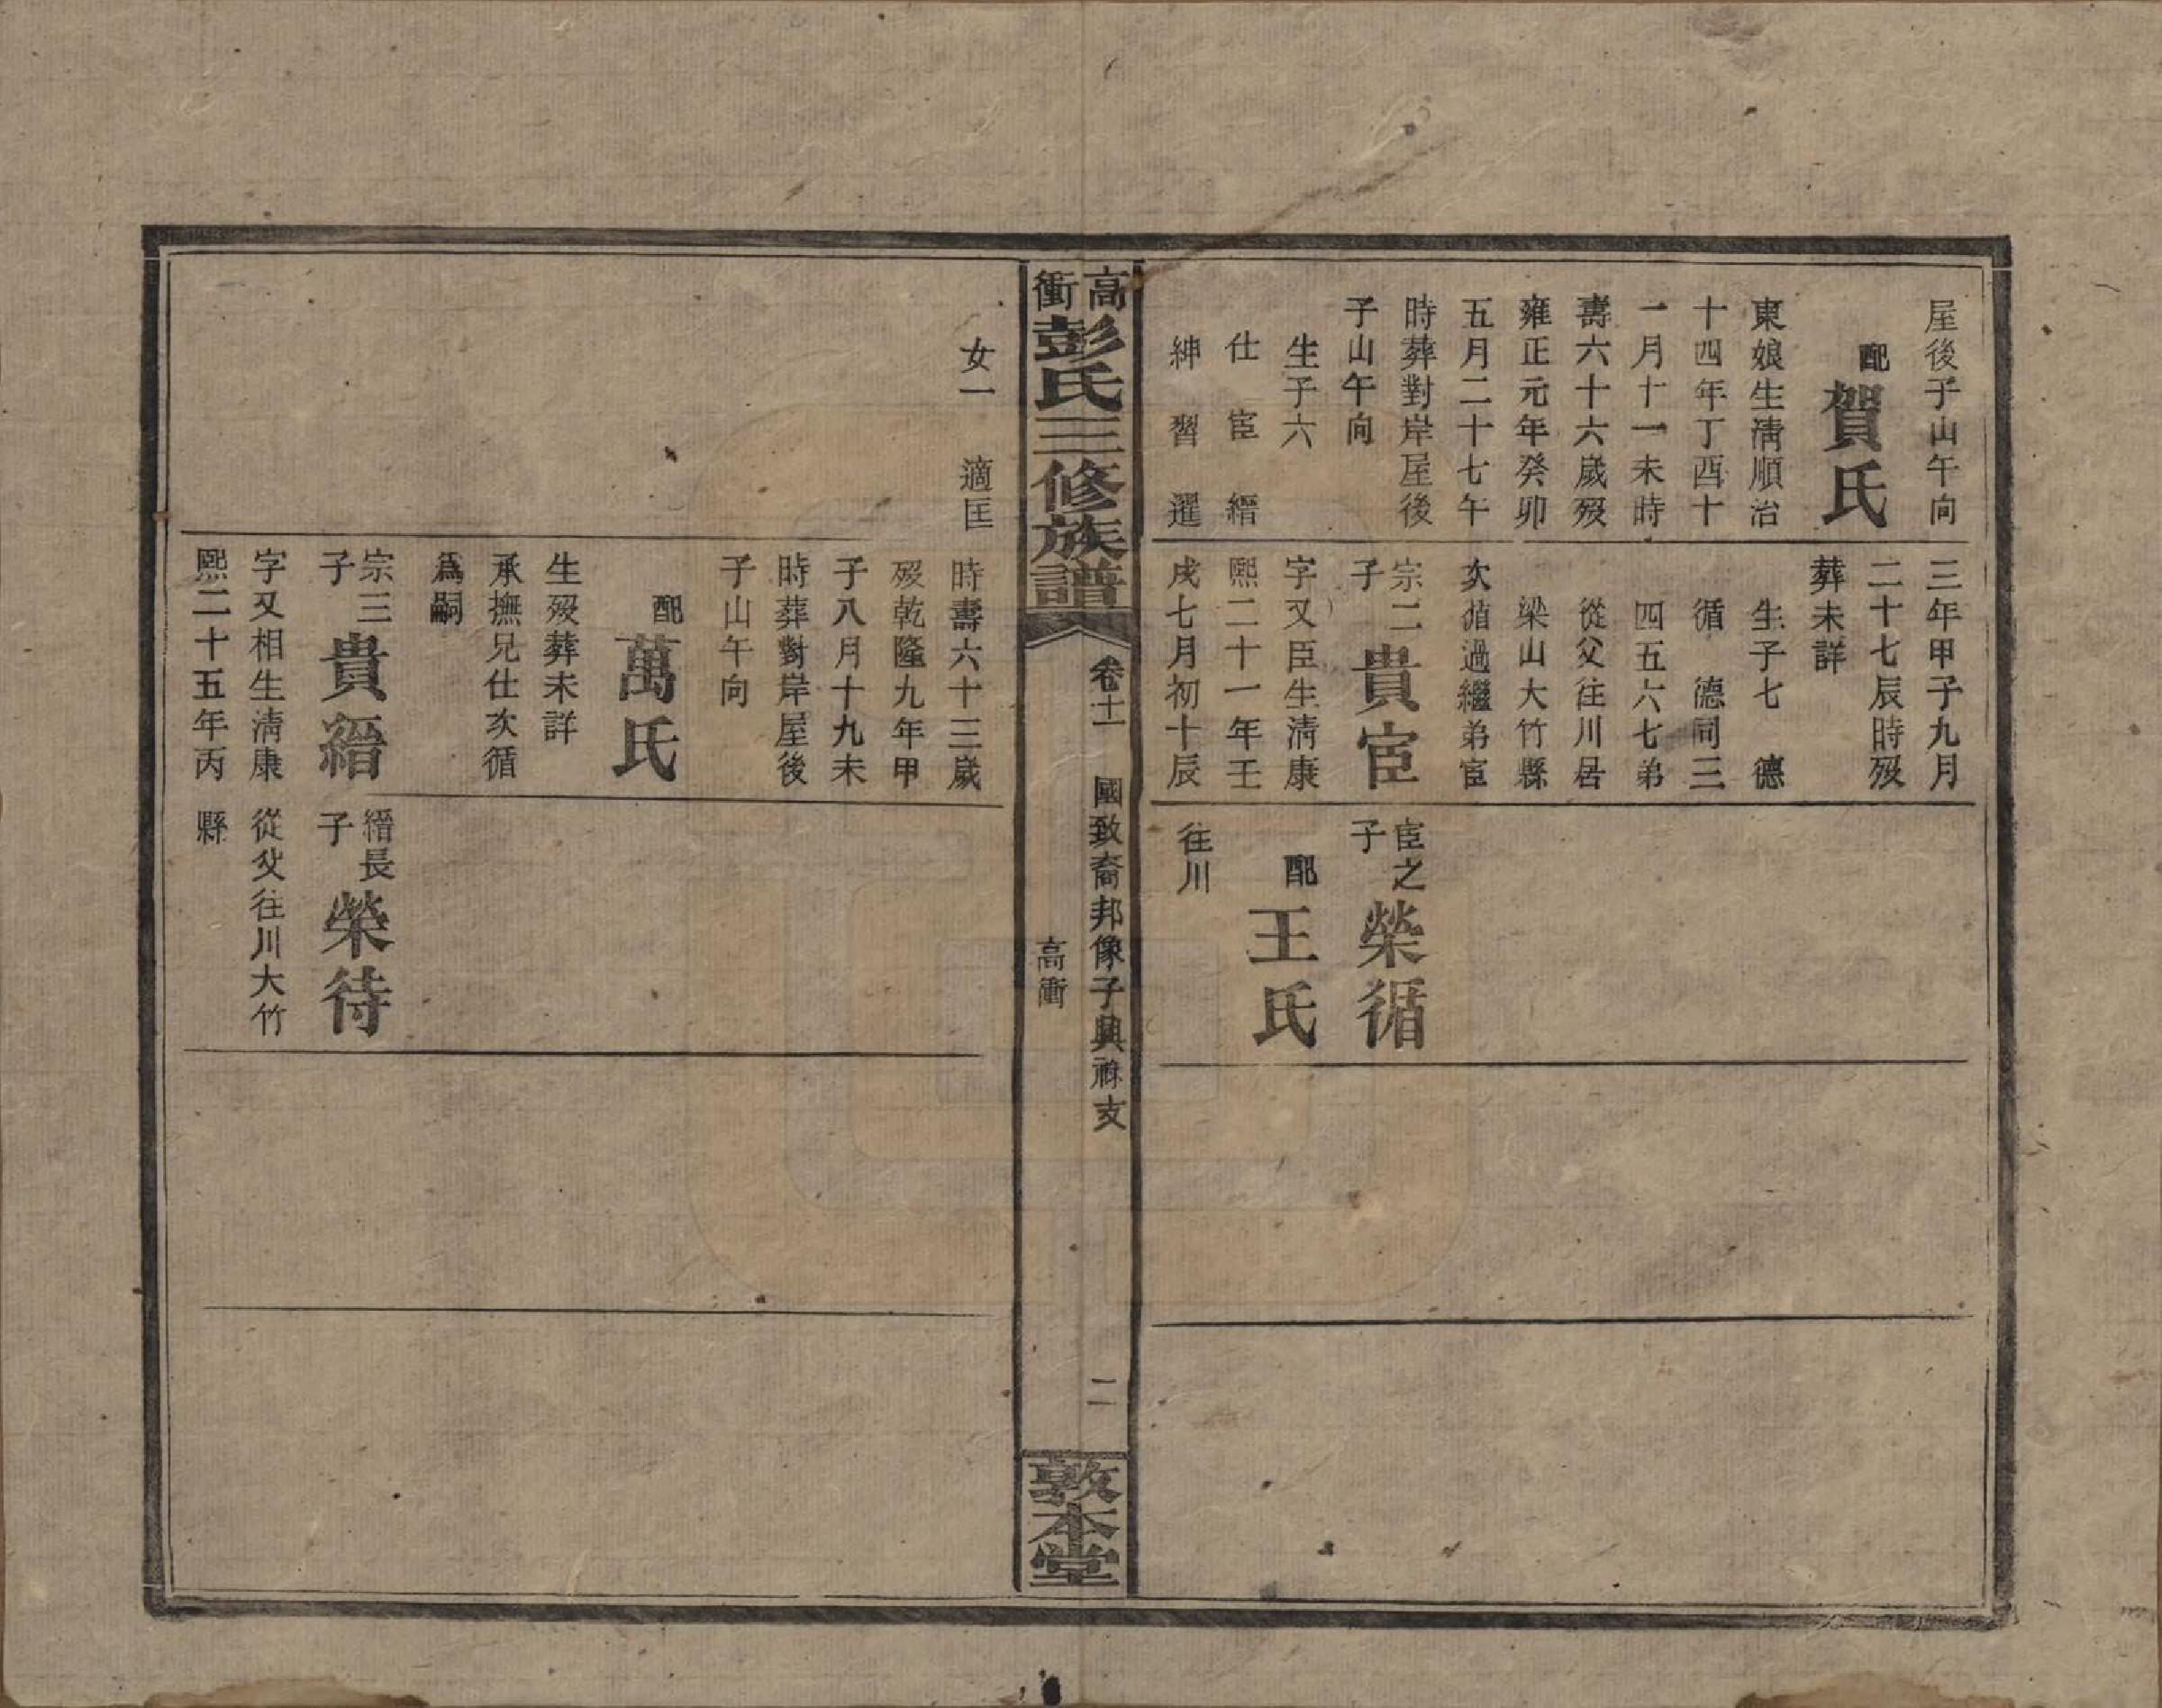 屋後子山午向
配賀氏
東娘生淸順治
十四年丁酉十
一月十一未時
壽六十六歲歿
雍正元年癸卯
五月二十七午
時葬對岸屋後
子山午向
生子六
仕宦縉
紳習選
三年甲子九月
二十七辰時歿
葬未詳
生子七 德
循 德同三
四五六七弟
從父往川居
梁山大竹縣
次循過繼弟宦
宗二子貴宦
字又臣生淸康
熙二十一年壬
戌七月初十辰
宦之子榮循
配王氏
往川
高衝彭氏三修族譜
卷十一
國致裔邦像子興祿支
高衝
二
敦本堂
女一 適匡
時壽六十三歲
歿乾隆九年甲
子八月十九未
時葬對岸屋後
子山午向
配萬氏
生歿葬未詳
承撫兄仕次循
爲嗣
宗三子貴縉
字又相生淸康
熙二十五年丙
縉長子榮待
從父往川大竹
縣